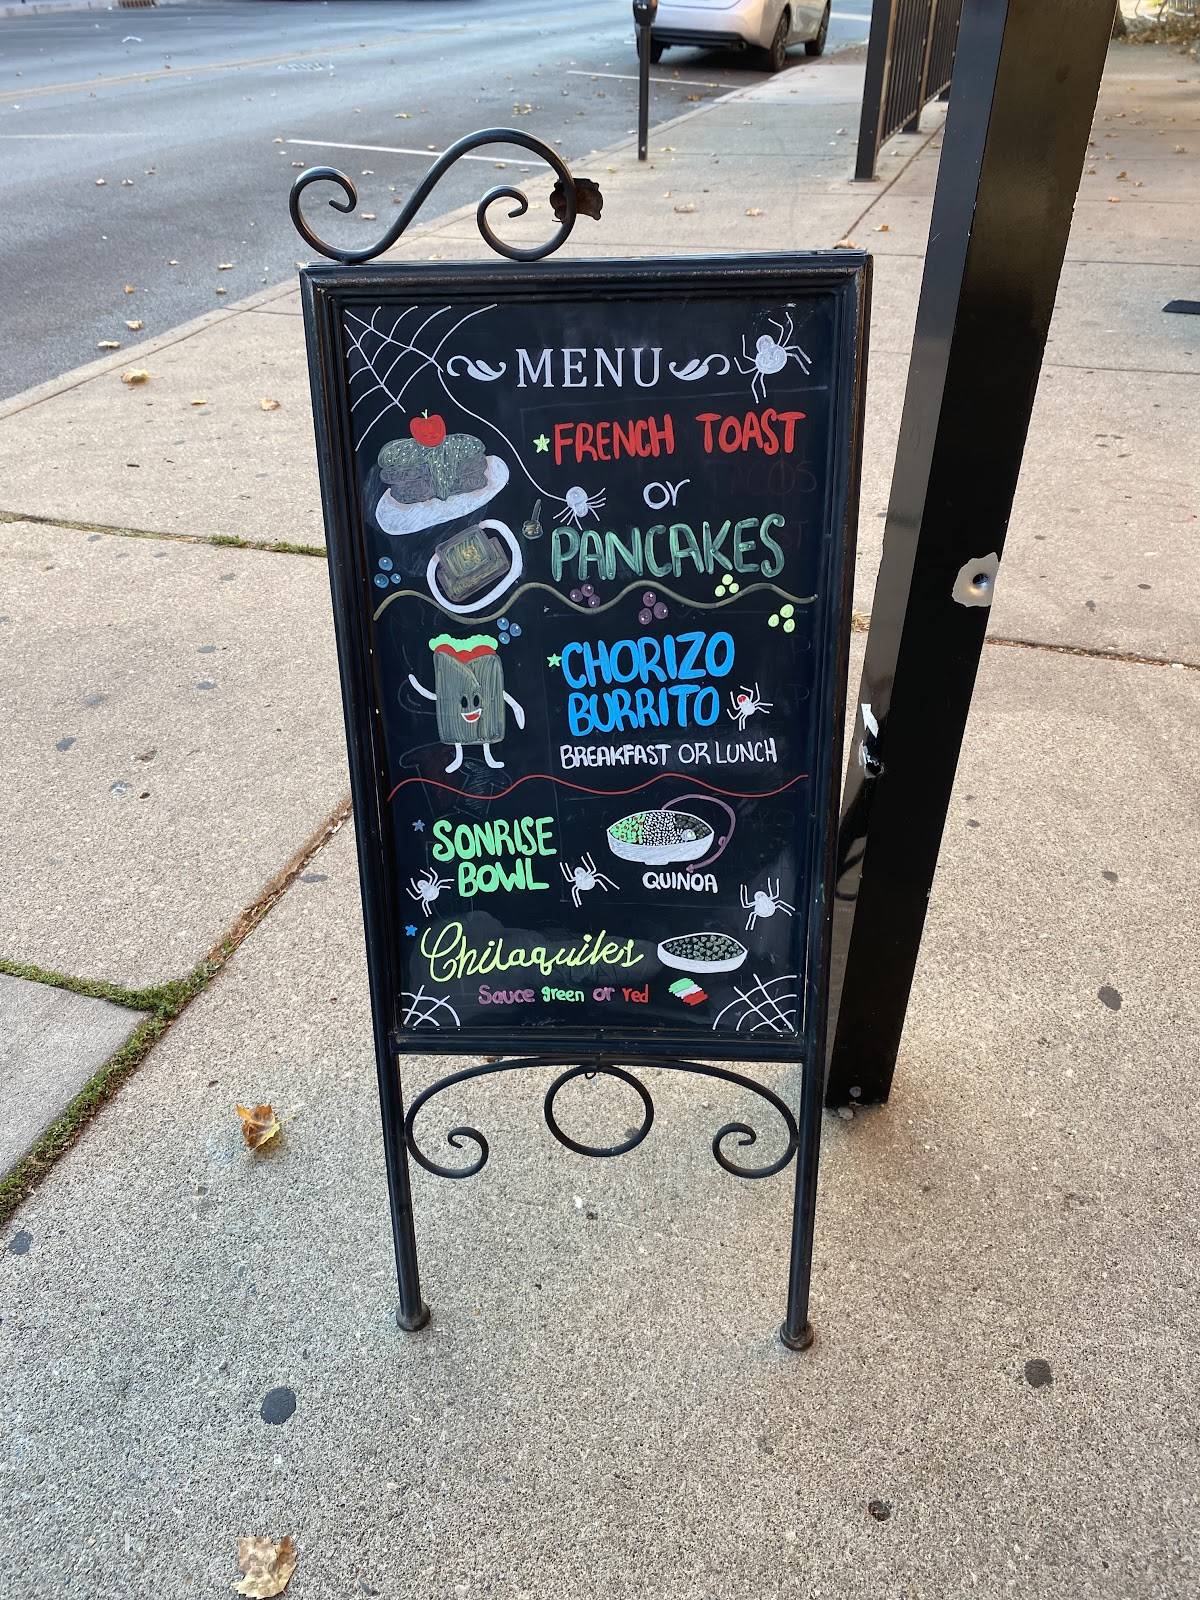 MENU
FRENCH TOAST
or
TACOS
PANCAKES
CHORIZO
BURRITO
BREAKFAST OR LUNCH
SONRISE
BOWL
QUINOA
Chilaquiles
Sauce green or red